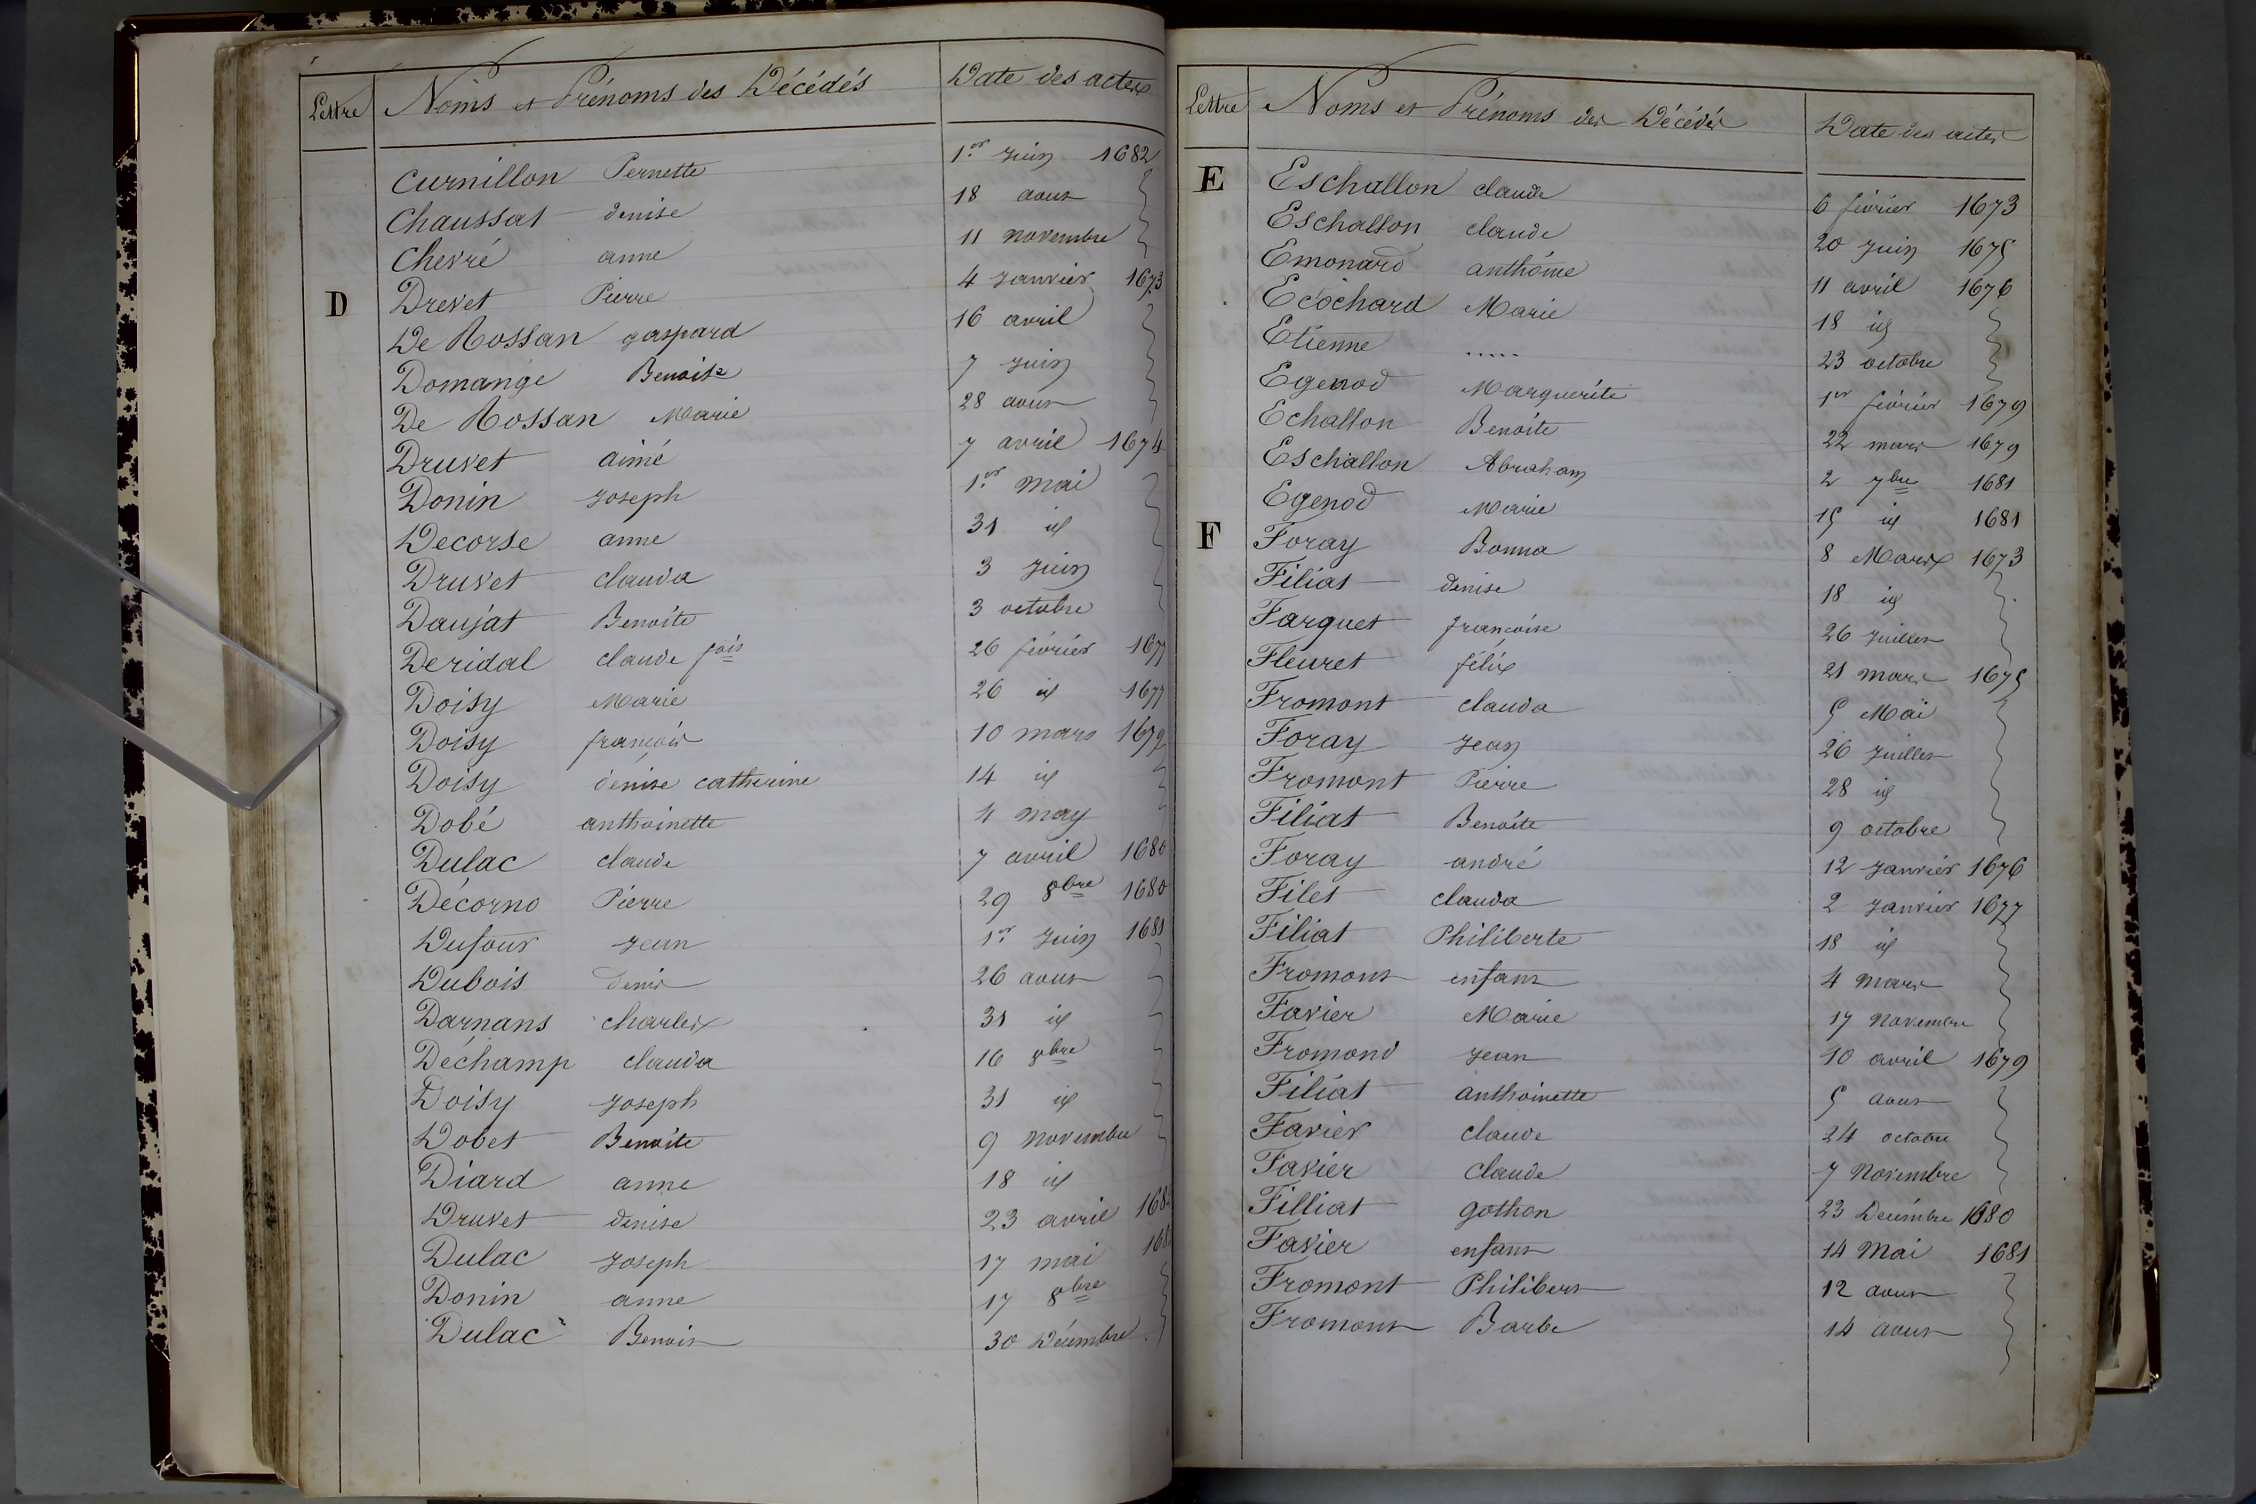 Lettre Noms et Prénoms des Décédés Date des actes
Curnillon Pernette 1.er Juin 1682
Chaussat denise 18 aout
Chevré anne 11 novembre
D Drevet Pierre 4 Janvier 1673
De Rossan gaspard 16 avril
Domange Benoite 7 Juin
De Rossan Marie 28 aout
Druvet aimé 7 avril 1674
Donin Joseph 1.er mai
Decorse anne 31 id
Druvet clauda 3 Juin
Daujat Benoite 3 octobre
Deridal claude fois 26 février 1677
Doisy Marie 26 id 1677
Doisy françois 10 mars 1679
Doisy denise catherine 14 id
Dobé anthoinette 4 may
Dulac claude 7 avril 1680
Décorno Pierre 29 8bre 1680
Dufour Jean 1.er Juin 1681
Dubois denis 26 aout
Darnans charles 31 id
Déchamp clauda 16 8bre
Doisy Joseph 31 id
Dobet Benoite 9 novembre
Diard anne 18 id
Druvet denise 23 avril
Dulac Joseph 17 mai
Donin anne 17 8bre
Dulac Benoit 30 Décembre
Lettre Noms et Prénoms des Décédés Date des actes
E Eschallon claude 6 février 1673
Eschallon claude 20 Juin 1675
Emonard anthoine 11 avril 1676
Ecochard Marie 18 id
Etienne ..... 23 octobre
Egenod Marguerite 1er février 1679
Echallon Benoite 22 mars 1679
Eschallon Abraham 2 7bre 1681
Egenod Marie 15 id 1681
F Foray Bonna 8 Mars 1673
Filiat denise 18 id
Farguet françoise 26 Juillet
Fleuret félix 21 mars 1675
Fromont clauda 5 Mai
Foray Jean 26 Juillet
Fromont Pierre 28 id
Filiat Benoite 9 octobre
Foray andré 12 Janvier 1676
Filet clauda 2 Janvier 1677
Filiat Philiberte 18 id
Fromont enfant 4 mars
Favier Marie 17 Novembre
Fromond Jean 10 avril 1679
Filiat anthoinette 5 aout
Favier claude 24 octobre
Favier claude 7 Novembre
Filliat gothon 23 Décembre 1680
Favier enfant 14 Mai 1681
Fromont Philibert 12 aout
Fromont Barbe 14 aout